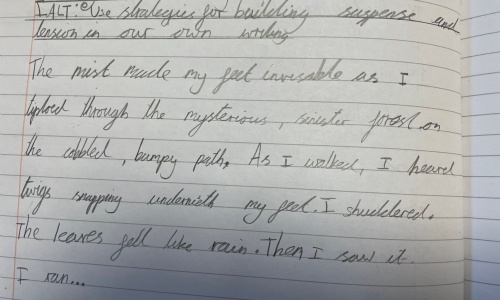 IALT: Use strategies for building suspense and
tension in our own writing
The mist made my feet invisable as I
tiptoed through the mysterious, sinister forest on
the cobbled, bumpy path. As I walked, I heard
twigs snapping underneath my feet. I shuddered.
The leaves fell like rain. Then I saw it.
I ran...